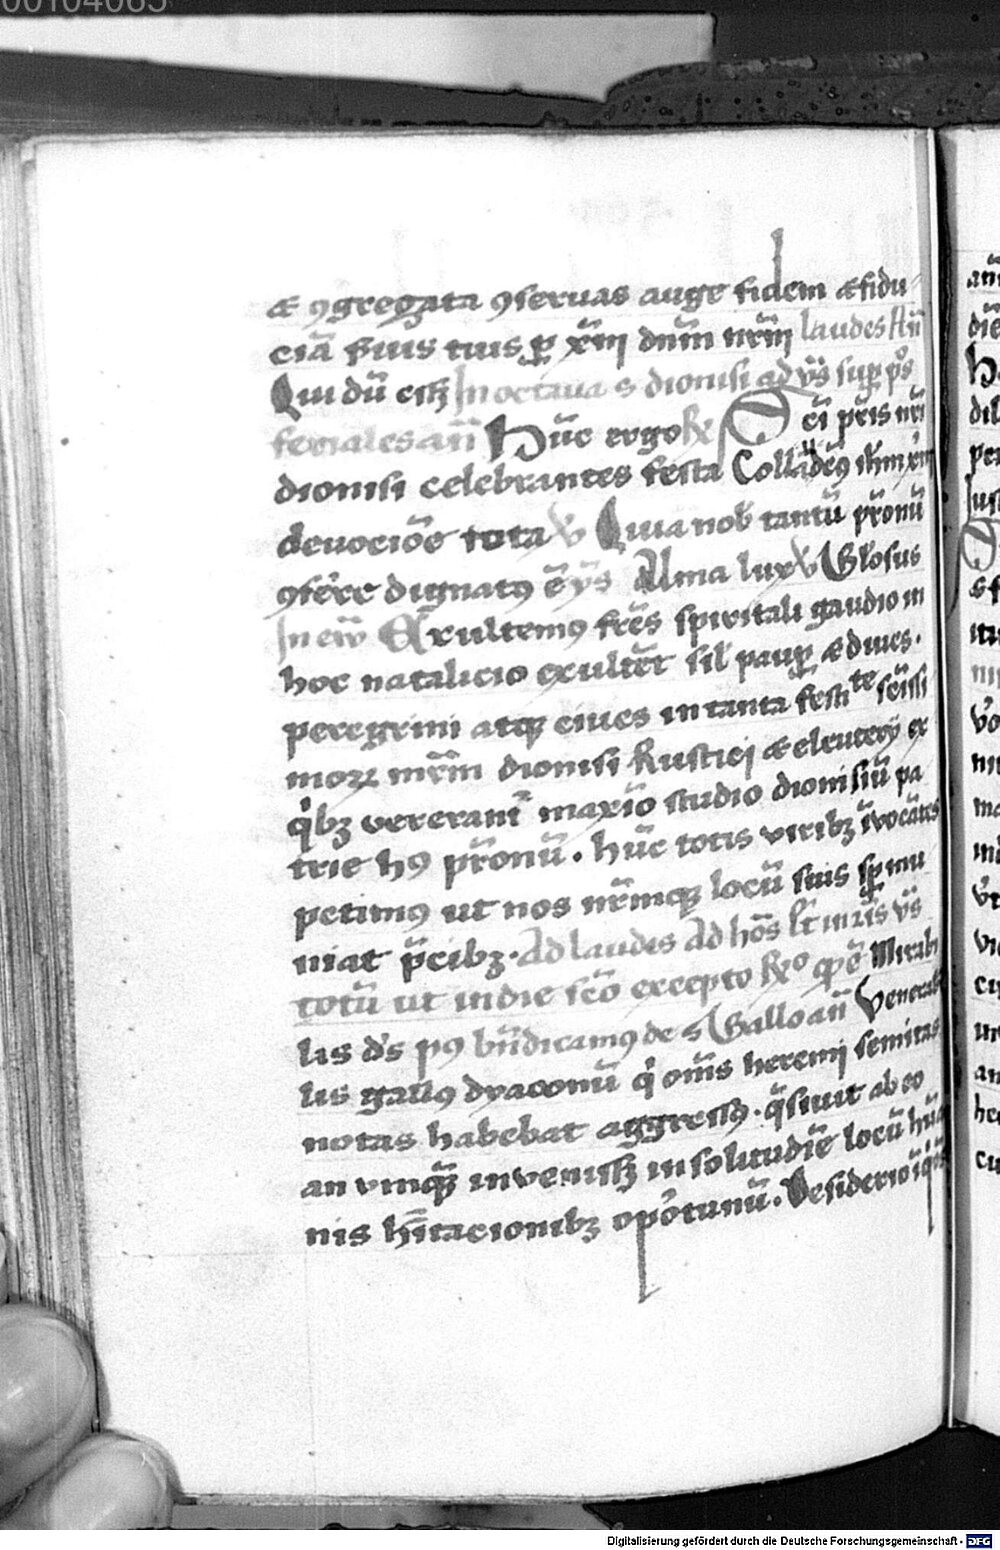 00104065
⁊ ꝯgregata ꝯseruas auge fidem ⁊ fidu
ciā ẜuis tuis ꝑ xp̄m dn̄m nr̄m laudes An̄
Qui dū eiꝫ In octaua s dionisi ad vs̄ suꝑ pōs
feriales an̄ Hūc ergo ℟ Sc̄i pr̄is nr̄i
dionisi celebrantes festa Collaudem9 ih̄m xp̄m
deuociōe tota ℣ Quia nob̄ tantū pr̄onū
ꝯferre dignat9 ē ys̄ Alma lux ℣ Glosus
In ew̄ Exultem9 fr̄es spiritali gaudio in
hoc natalicio exultēt sil̄ pauꝑ ⁊ diues.
peregrini atqꝫ ciues in tanta festite sc̄issi
moꝝ mr̄m dionisi Rustici ⁊ eleuterij ex
qͥbꝫ vererant maxīo studio dionisiū pa
trie h9 pr̄onū. hūc totis viribꝫ īvocātes
petim9 ut nos nr̄mqꝫ locū suis sꝑ mu
niat p̄cibꝫ. Ad laudes Ad hōs lr̄ in rīs vs̄
totū ut in die sc̄o excepto ℟o Mirabi
lis ds̄ p9 bn̄dicam9 de s Gallo an̄ Venerabi
lis gall9 dyaconū qͥ om̄s heremi semitas
notas habebat aggress9. q̄siuit ab eo
an vmqᷓꝫ invenissꝫ in solitudīe locū hūa
nis hītacionibꝫ oportunū. Desiderio
Digitalisierung gefördert durch die Deutsche Forschungsgemeinschaft - DFG